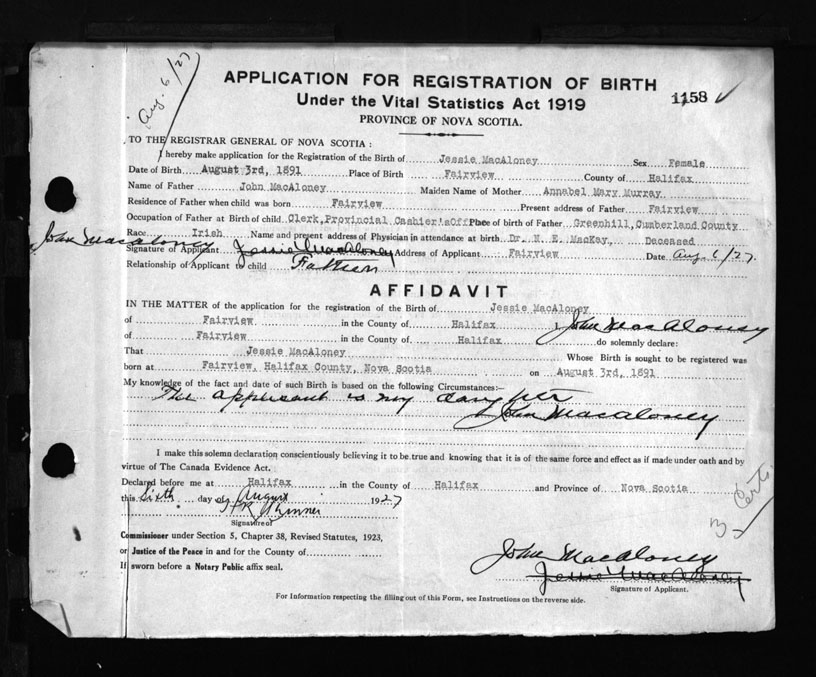 Aug. 6/27
APPLICATION FOR REGISTRATION OF BIRTH
1158 ✓
Under the Vital Statistics Act 1919
PROVINCE OF NOVA SCOTIA.
TO THE REGISTRAR GENERAL OF NOVA SCOTIA :
I hereby make application for the Registration of the Birth of Jessie MacAloney Sex Female
Date of Birth August 3rd, 1891 Place of Birth Fairview County of Halifax
Name of Father John MacAloney Maiden Name of Mother Annabel Mary Murray
Residence of Father when child was born Fairview Present address of Father Fairview
Occupation of Father at Birth of child Clerk,Provincial Cashier'sOff Place of birth of Father Greenhill,Cumberland County
Race Irish Name and present address of Physician in attendance at birth Dr. N. E. MacKay, Deceased
John Macaloney
Signature of Applicant Jessie MacAloney Address of Applicant Fairview Date Aug. 6/27.
Relationship of Applicant to child Father
AFFIDAVIT
IN THE MATTER of the application for the registration of the Birth of Jessie MacAloney
of Fairview in the County of Halifax I, John MacAloney
of Fairview in the County of Halifax do solemnly declare:
That Jessie MacAloney Whose Birth is sought to be registered was
born at Fairview, Halifax County, Nova Scotia on August 3rd, 1891
My knowledge of the fact and date of such Birth is based on the following Circumstances:—
The applicant is my daughter
John Macaloney
I make this solemn declaration conscientiously believing it to be true and knowing that it is of the same force and effect as if made under oath and by
virtue of The Canada Evidence Act.
Declared before me at Halifax in the County of Halifax and Province of Nova Scotia
this Sixth day of August 1927
3 Certs.
Signature of
Commissioner under Section 5, Chapter 38, Revised Statutes, 1923,
or Justice of the Peace in and for the County of
If sworn before a Notary Public affix seal.
John Macaloney
Jessie MacAloney
Signature of Applicant.
For Information respecting the filling out of this Form, see Instructions on the reverse side.